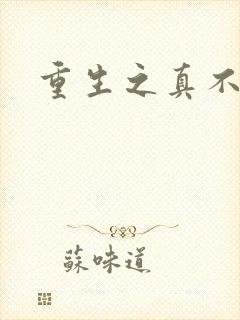 重生之真不
蘇味道